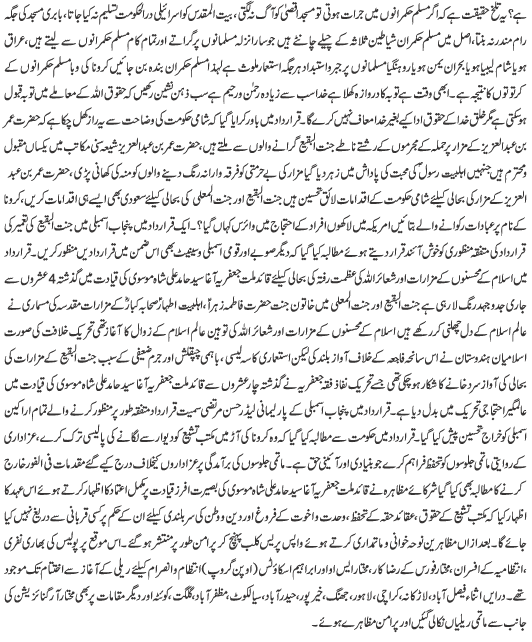 ہے؟ یہ تلخ حقیقت ہے کہ اگر مسلم حکمرانوں میں جرات ہوتی تو مسجد اقصی کو آگ نہ لگتی، بیت المقدس کو اسرائیلی دارالحکومت تسلیم نہ کیا جاتا، بابری مسجد کی جگہ
رام مندر نہ بنتا، اصل میں مسلم حکمران شیاطین ثلاثہ کے چیلے چانٹے ہیں جو سارا نزلہ مسلمانوں پر گراتے اور تمام کام مسلم حکمرانوں سے لیتے ہیں، عراق
ہو یا شام لیبیا ہو یا بحران یمن ہو یا روہنگیا مسلمانوں پر جبر و استبداد ہر جگہ استعمار ملوث ہے لہذا مسلم حکمران بندہ بن جائیں کرونا کی وبا مسلم حکام کے
کرتوتوں کا نتیجہ ہے۔ ابھی وقت ہے توبہ کا دروازہ کھلا ہے خدا سب سے زیادہ رحمٰن و رحیم ہے سب ذہن نشین رکھیں کہ حقوق اللہ کے معاملے میں توبہ قبول
ہو سکتی ہے مگر خلق خدا کے حقوق ادا کیے بغیر خدا معاف نہیں کرے گا۔ قرارداد میں باور کرایا گیا کہ شامی حکومت کی وضاحت سے یہ راز کھل چکا ہے کہ حضرت عمر
بن عبدالعزیز کے مزار پر حملہ کے مجرموں کے رشتے ناطے جنت البقیع گرانے والوں سے ملتے ہیں، حضرت عمر بن عبدالعزیز شیعہ سنی مکاتب میں یکساں مقبول
و محترم ہیں جنہیں اہلبیت رسولؐ کی محبت کی پاداش میں زہر دیا گیا مزار کی بے حرمتی کو فرقہ وارانہ رنگ دینے والوں کو منہ کی کھانی پڑی، حضرت عمر بن عبد
العزیز کے مزار کی بحالی کیلئے شامی حکومت کے اقدامات لائق تحسین ہیں جنت البقیع اور جنت المعلی کی بحالی کیلئے سعودی بھی ایسے ہی اقدامات کریں، کرونا
کے نام پر عبادات رکوانے والے بتائیں امریکہ میں لاکھوں افراد کے احتجاج میں وائرس کہاں گیا؟۔ ایک قرارداد میں پنجاب اسمبلی میں جنت البقیع کی تعمیر کی
قرارداد کی متفقہ منظوری کو خوش آئند قرار دیتے ہوئے مطالبہ کیا گیا کہ دیگر صوبے اور قومی اسمبلی و سینیٹ بھی اس ضمن میں قراردادیں منظور کریں۔ قرارداد
میں اسلام کے محسنوں کے مزارات اور شعائر اللہ کی عظمت رفتہ کی بحالی کیلئے قائد ملت جعفریہ آغا سید حامد علی شاہ موسوی کی قیادت میں گذشتہ 4 عشروں سے
جاری جدوجہد رنگ لا رہی ہے جنت البقیع اور جنت المعلی میں خاتون جنت حضرت فاطمہ زہراؑ، اہلبیت اطہارؑ صحابہ کبارؓ کے مزارات مقدسہ کی مسماری نے
عالم اسلام کے دل چھلنی کر رکھے ہیں اسلام کے محسنوں کے مزارات اور شعائر اللہ کی توہین عالم اسلام کے زوال کا آغاز تھی تحریک خلافت کی صورت
اسلامیان ہندوستان نے اس سانحہ فاجعہ کے خلاف آواز بلند کی لیکن استعماری کاسہ لیسی، باہمی چپقلش اور جرم ضعیفی کے سبب جنت البقیع کے مزارات کی
بحالی کی آواز سرد خانے کا شکار ہو چکی تھی جسے تحریک نفاذ فقہ جعفریہ نے گذشتہ چار عشروں سے قائد ملت جعفریہ آغا سید حامد علی شاہ موسوی کی قیادت میں
عالمگیر احتجاجی تحریک میں بدل دیا ہے۔ قرارداد میں پنجاب اسمبلی کے پارلیمانی لیڈر حسن مرتضی سمیت قرارداد متفقہ طور پر منظور کرنے والے تمام اراکین
اسمبلی کو خراج تحسین پیش کیا گیا۔ قرارداد میں حکومت سے مطالبہ کیا گیا کہ وہ کرونا کی آڑ میں مکتب تشیع کو دیوار سے لگانے کی پالیسی ترک کرے، عزاداری
کے روایتی ماتمی جلوسوں کو تحفظ فراہم کرے جو بنیادی اور آئینی حق ہے۔ ماتمی جلوسوں کی برآمدگی پر عزاداروں کیخلاف درج کیے گئے مقدمات فی الفور خارج
کرنے کا مطالبہ بھی کیا گیا شرکائے مظاہرہ نے قائد ملت جعفریہ آغا سید حامد علی شاہ موسوی کی بصیرت افروز قیادت پر مکمل اعتماد کا اظہار کرتے ہوئے اس عہد کا
اظہار کیا کہ مکتب تشیع کے حقوق، عقائد حقہ کے تحفظ، وحدت و اخوت کے فروغ اور دین و وطن کی سربلندی کیلئے ان کے حکم پر کسی قربانی سے دریغ نہیں کیا
جائے گا۔ بعد ازاں مظاہرین نوحہ خوانی و ماتمداری کرتے ہوئے واپس پریس کلب پہنچ کر پرامن طور پر منتشر ہوگئے۔ اس موقع پر پولیس کی بھاری نفری
، انتظامیہ کے افسران، مختار فورس کے رضاکار، مختار ایس او اور ابراہیم اسکاؤٹس (اوپن گروپ) انتظام و انصرام کیلئے ریلی کے آغاز سے اختتام تک موجود
تھے۔ دریں اثناء فیصل آباد، لاڑکانہ، کراچی، لاہور، جھنگ، خیر پور، حیدر آباد، سیالکوٹ، مظفر آباد، گلگت، کوئٹہ اور دیگر مقامات پر بھی مختار آرگنائزیشن کی
جانب سے ماتمی ریلیاں نکالی گئیں اور پرامن مظاہرے ہوئے۔